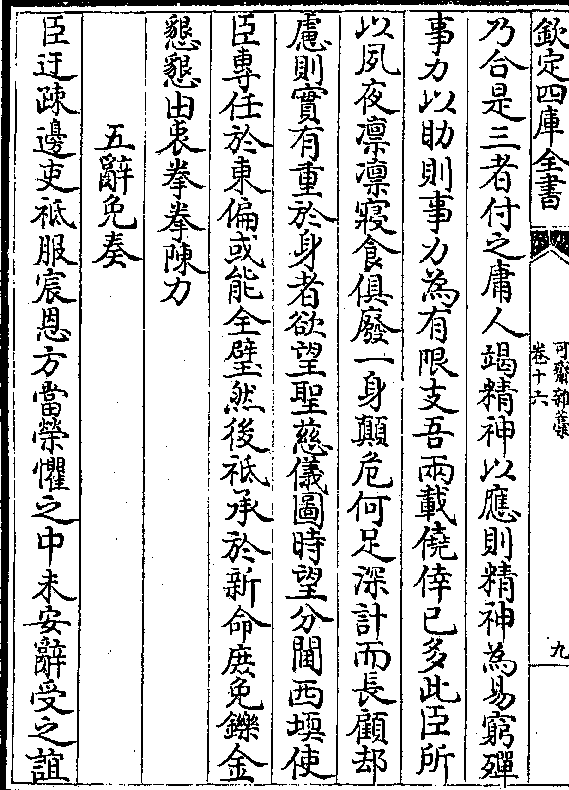 欽定四庫全書
可齋雜藁
卷十六
九
乃合是三者付之庸人竭精神以應則精神為易窮殫
事力以助則事力為有限支吾兩載僥倖已多此臣所
以夙夜凛凛寢食俱廢一身顛危何足深計而長顧却
慮則實有重於身者欲望聖慈儀圖時望分閫西堧使
臣専任於東偏或能全璧然後祗承於新命庶免鑠金
懇懇由衷拳拳陳力
五辭免奏
臣迂疎邊吏祗服宸恩方當榮懼之中未安辭受之誼